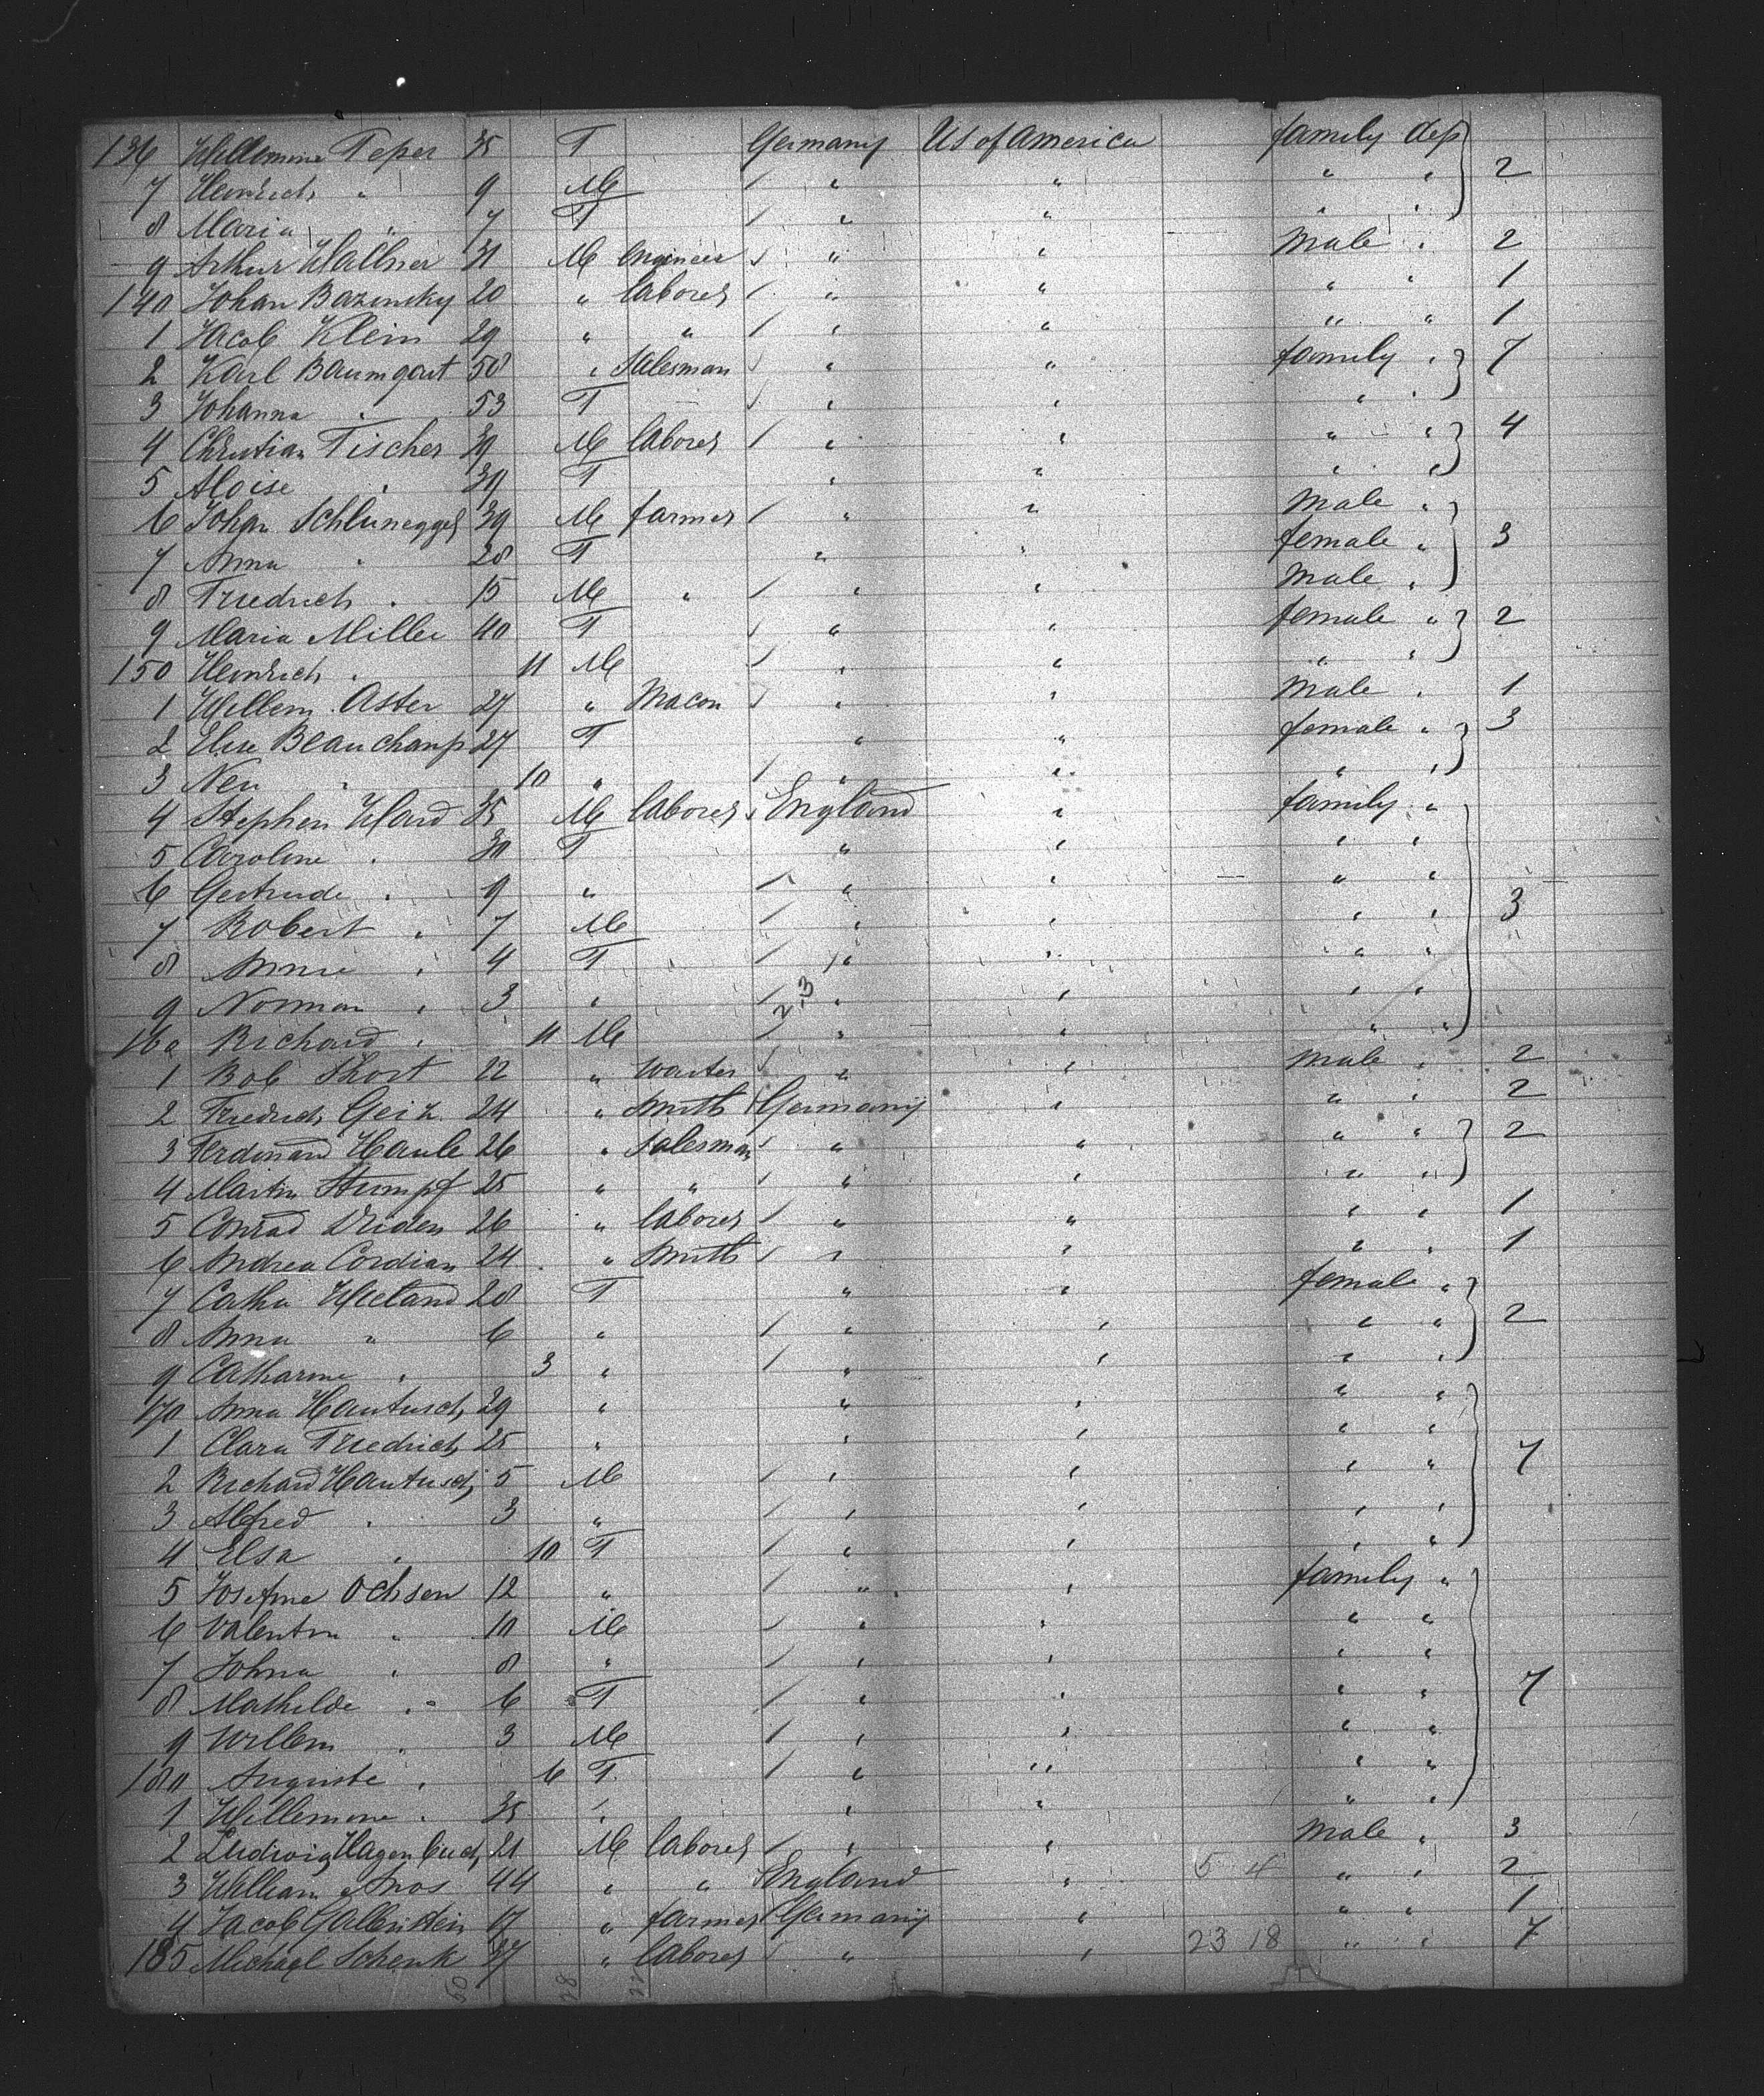 136 Willemine Peper 35 F Germany US of America family dep 2
7 Heinrich " 9 M " " " "
8 Maria " 7 F " " " "
9 Arthur Wallner 31 M engineer " " male " 2
140 Johan Bazinsky 20 " laborer " " " " 1
1 Jacob Klein 29 " " " " " " 1
2 Karl Baumgart 58 " salesman " " family " 7
3 Johanna " 53 F " " " "
4 Christian Fischer 39 M laborer " " " " 4
5 Aloise " 39 F " " " "
6 Johan Schlunegger 39 M farmer " " male " 3
7 Anna " 28 F " " female "
8 Friedrich " 15 M " " " male "
9 Maria Miller 40 F " " female " 2
150 Heinrich " 11 M " " " "
1 Willem Aster 27 " Macon " " male " 1
2 Elise Beauchamp 27 F " " female " 3
3 " 10 " " " " "
4 Stephen Ward 35 M laborer England " family " 3
5 Caroline " 30 F " " " "
6 Gertrude " 9 " " " " "
7 Robert " 7 M " " " "
8 Annie " 4 F " " " "
9 Norman " 3 " " " " "
160 Richard " 11 M " " " "
1 Bob Short 22 " waiter " " male " 2
2 Friedrich Geih 24 " smith Germany " " " 2
3 Ferdinand Haule 26 " salesman " " " " 2
4 Martin Stumpf 25 " " " " " "
5 Conrad 26 " laborer " " " " 1
6 Andrea Cordian 24 " smith " " " " 1
7 Catha Wieland 28 F " " female " 2
8 Anna " 6 " " " " "
9 Catharine " 3 " " " " "
170 Anna Hantusch 29 " " " " " 7
1 Clara Friedrich 25 " " " " "
2 Richard Hantusch 5 M " " " "
3 Alfred " 3 " " " " "
4 Elsa " 10 F " " " "
5 Josefine Ochsen 12 " " " family " 7
6 Valentin " 10 M " " " "
7 Johna " 8 " " " " "
8 Mathilde " 6 F " " " "
9 Willem " 3 M " " " "
180 Auguste " 6 F " " " "
1 Willemine " 35 " " " " "
2 Ludwig Hagenbuch 21 M laborer " " male " 3
3 William Amos 44 " " England " 5 4 " " 2
4 Jacob Gallenstein 17 " farmer Germany " " " 1
185 Michael Schenk 37 " laborer " " 23 18 " " 7